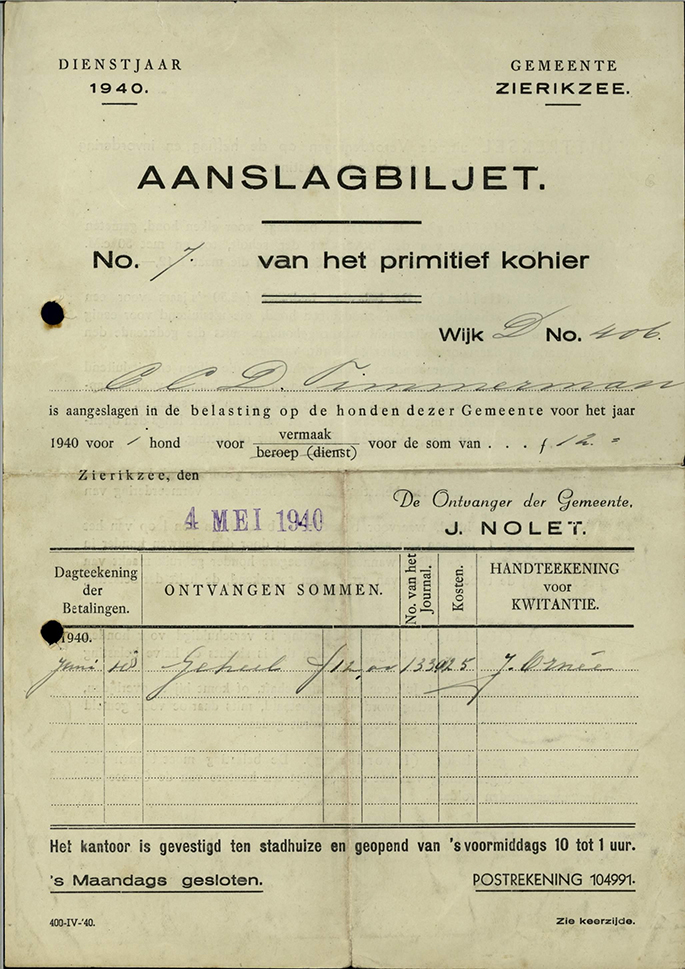 DIENSTJAAR
1940.
GEMEENTE
ZIERIKZEE.
AANSLAGBILJET.
No. 7. van het primitief kohier
Wijk D No. 406.
C C D. Timmerman
is aangeslagen in de belasting op de honden dezer Gemeente voor het jaar
1940 voor 1 hond voor vermaak beroep (dienst) voor de som van . . . ƒ 12.=
Zierikzee, den
4 MEI 1940
De Ontvanger der Gemeente,
J. NOLET.
Dagteekening der Betalingen.
ONTVANGEN SOMMEN.
No. van het Journal.
Kosten.
HANDTEEKENING voor KWITANTIE.
1940.
Juni Geheel ƒ 12,00 25 J.
Het kantoor is gevestigd ten stadhuize en geopend van 's voormiddags 10 tot 1 uur.
's Maandags gesloten.
POSTREKENING 104991.
400-IV-'40.
Zie keerzijde.